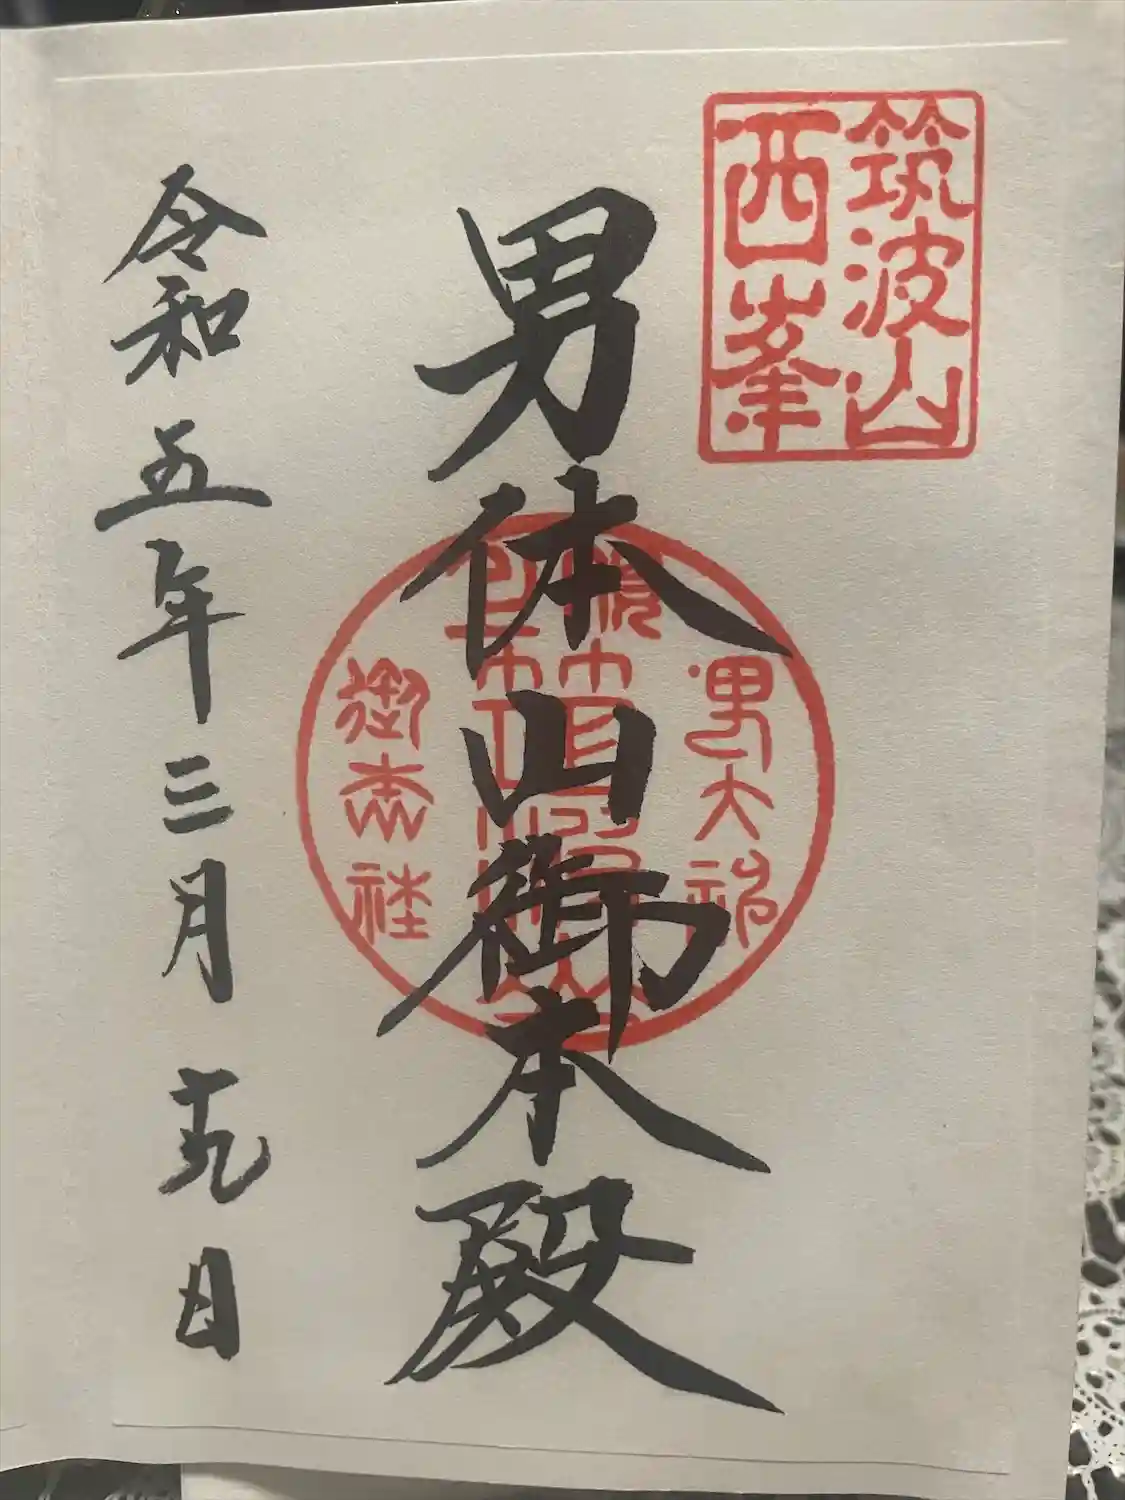 筑波山
西峯
男体山御本殿
男大神
御本社
令和五年三月十九日